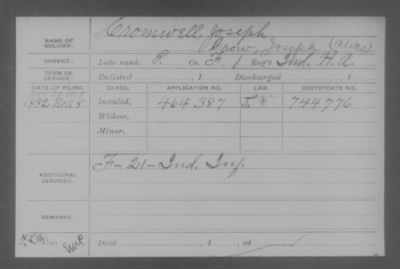 NAME OF SOLDIER: Cromwell, Joseph
Crow, Joseph (Alias)
SERVICE: Late rank, P. Co. F, 1 Reg't Ind. H. A.
TERM OF SERVICE: Enlisted , 1 Discharged , 1
DATE OF FILING. CLASS. APPLICATION NO. LAW. CERTIFICATE NO.
1882 Invalid, 464.387 744776
Widow,
Minor,
ADDITIONAL SERVICES: F-21-Ind. Inf.
REMARKS:
Died , 1 , at